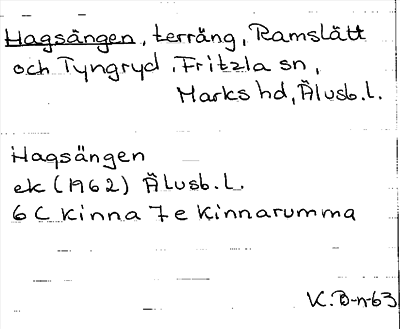 Hagsängen, terräng, Ramslätt
och Tyngryd, Fritzla sn,
Marks hd, Älvsb.l.
Hagsängen
ek (1962) Älvsb.l.
6 C Kinna 7 e Kinnarumma
K.B-n-63